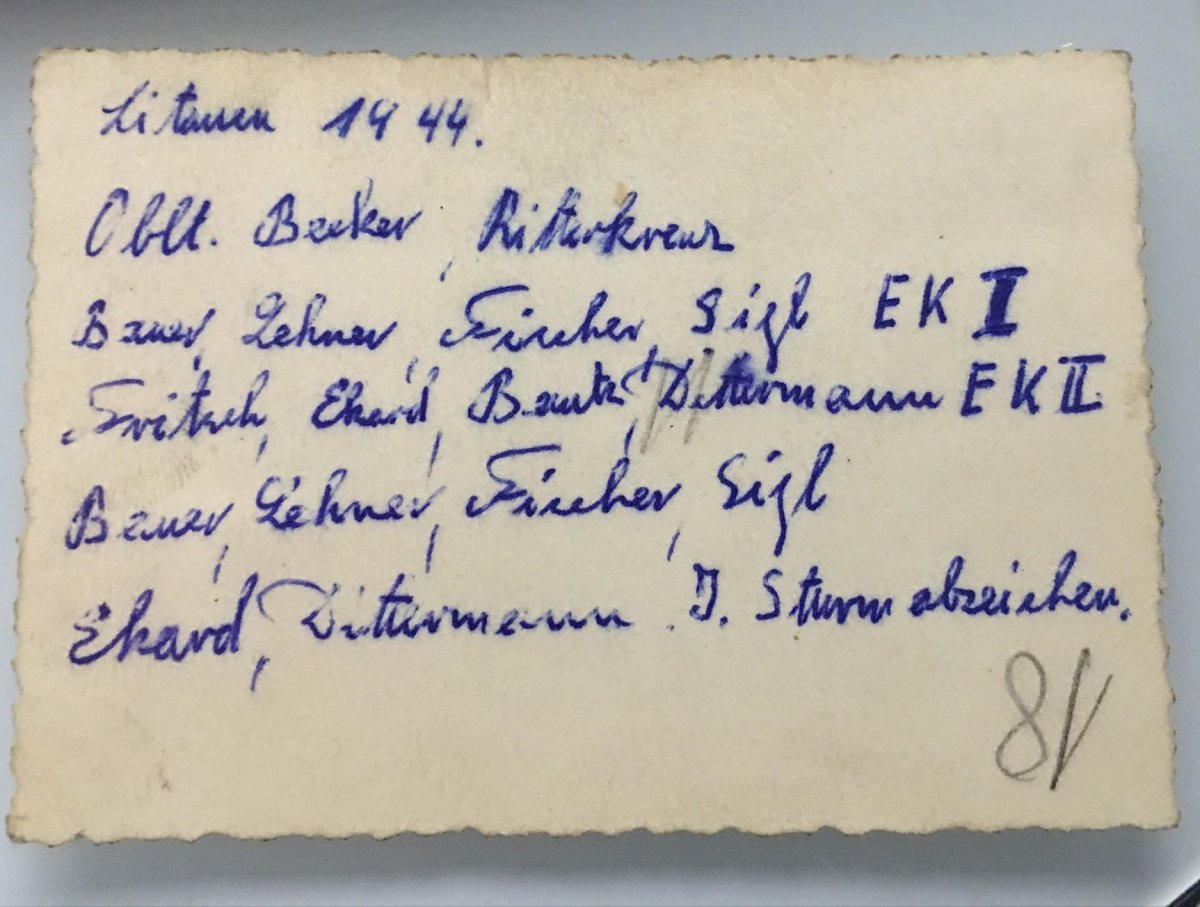 Litauen 1944.
Oblt. Becker, Ritterkreuz
Bauer, Lehner, Fischer, Sigl EK I
Fritsch, Ekard, Dittermann EK II
Bauer, Lehner, Fischer, Sigl
Ekard, Dittermann J. Sturmabzeichen.
81